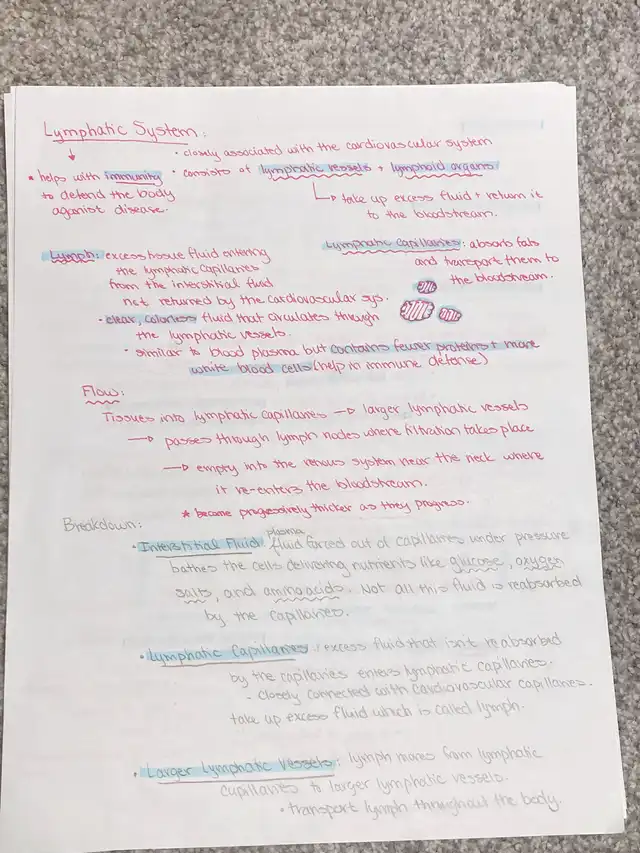 Lymphatic System:
• closely associated with the cardiovascular system
* helps with immunity
to defend the body
agonist disease.
• consists of lymphatic vessels + lymphoid organs.
↳ take up excess fluid + return it
to the bloodstream.
Lymph: excess tissue fluid entering
the lymphatic capillaries
from the interstitial fluid
not returned by the cardiovascular sys.
• clear, colorless fluid that circulates through
the lymphatic vessels.
• similar to blood plasma but contains fewer proteins + more
white blood cells (help in immune defense)
Lymphatic Capillaries: absorb fats
and transport them to
the bloodstream.
Flow:
Tissues into lymphatic capillaries → larger lymphatic vessels
→ passes through lymph nodes where filtration takes place
→ empty into the venous system near the neck where
it re-enters the bloodstream.
* become progressively thicker as they progress.
Breakdown:
• Interstitial Fluid: plasma fluid forced out of capillaries under pressure
bathes the cells delivering nutrients like glucose, oxygen
salts, and amino acids. Not all this fluid is reabsorbed
by the capillaries.
• Lymphatic Capillaries: excess fluid that isn't reabsorbed
by the capillaries enters lymphatic capillaries.
- closely connected with cardiovascular capillaries.
take up excess fluid which is called lymph.
• Larger Lymphatic Vessels: lymph moves from lymphatic
capillaries to larger lymphatic vessels.
• transport lymph throughout the body.